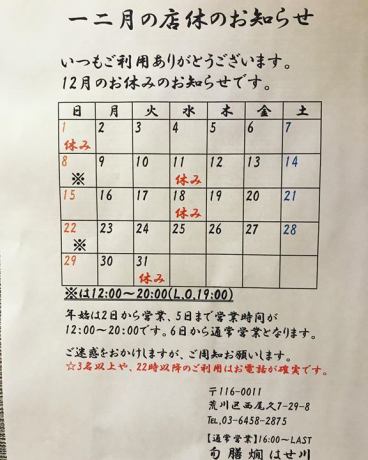 一二月の店休のお知らせ
いつもご利用ありがとうございます。
12月のお休みのお知らせです。
日 月 火 水 木 金 土
1 2 3 4 5 6 7
休み
8 9 10 11 12 13 14
※ 休み
15 16 17 18 19 20 21
休み
22 23 24 25 26 27 28
※
29 30 31
休み
※は12:00~20:00(L.O.19:00)
年始は2日から営業、5日まで営業時間が
12:00~20:00です。6日から通常営業となります。
ご迷惑をおかけしますが、ご周知お願いします。
☆3名以上や、22時以降のご利用はお電話が確実です。
〒116-0011
荒川区西尾久7-29-8
Tel,03-6458-2875
【通常営業】16:00~LAST
旬膳燗 はせ川